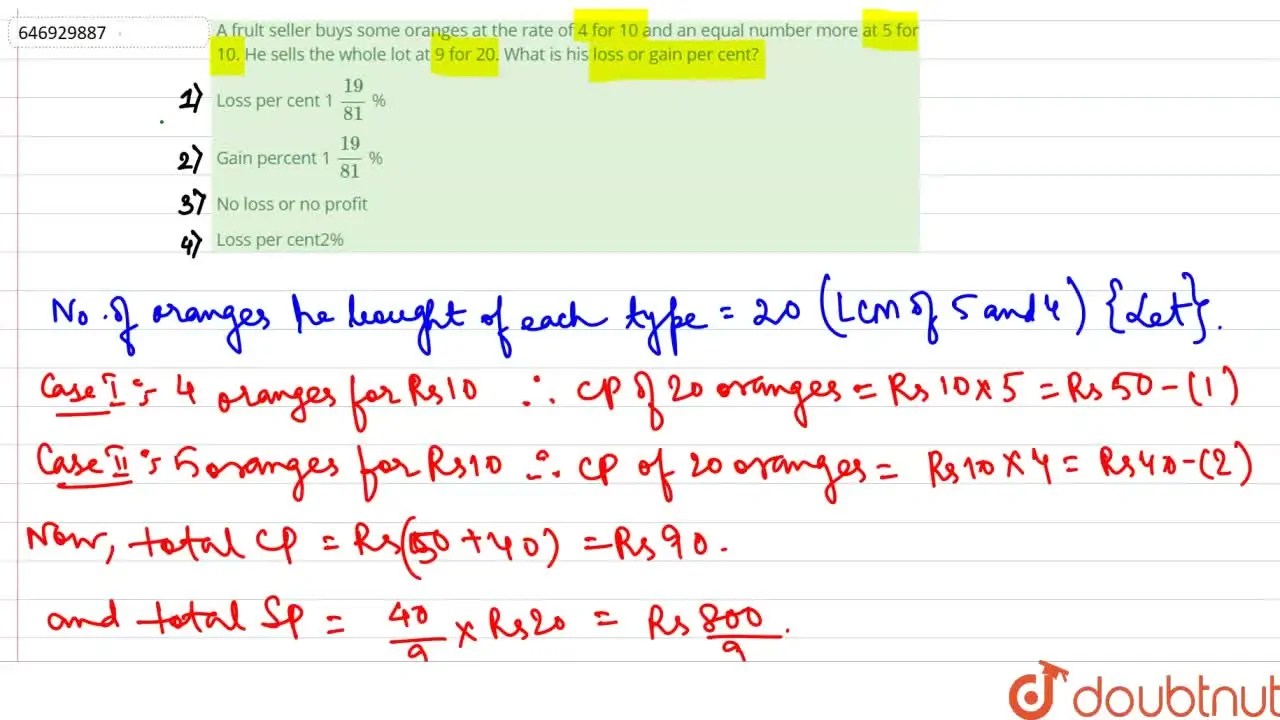 646929887
A fruit seller buys some oranges at the rate of 4 for 10 and an equal number more at 5 for
10. He sells the whole lot at 9 for 20. What is his loss or gain per cent?
1) Loss per cent 1 19/81 %
2) Gain percent 1 19/81 %
3) No loss or no profit
4) Loss per cent2%
No. of oranges he bought of each type = 20 (LCM of 5 and 4) {Let}.
Case I :- 4 oranges for Rs10 ∴ CP of 20 oranges = Rs 10 x 5 = Rs 50 - (1)
Case II :- 5 oranges for Rs10 ∴ CP of 20 oranges = Rs10 x 4 = Rs40 - (2)
Now, total CP = Rs(50 + 40) = Rs 90.
and total SP = 40/9 x Rs20 = Rs 800/9.
doubtnut